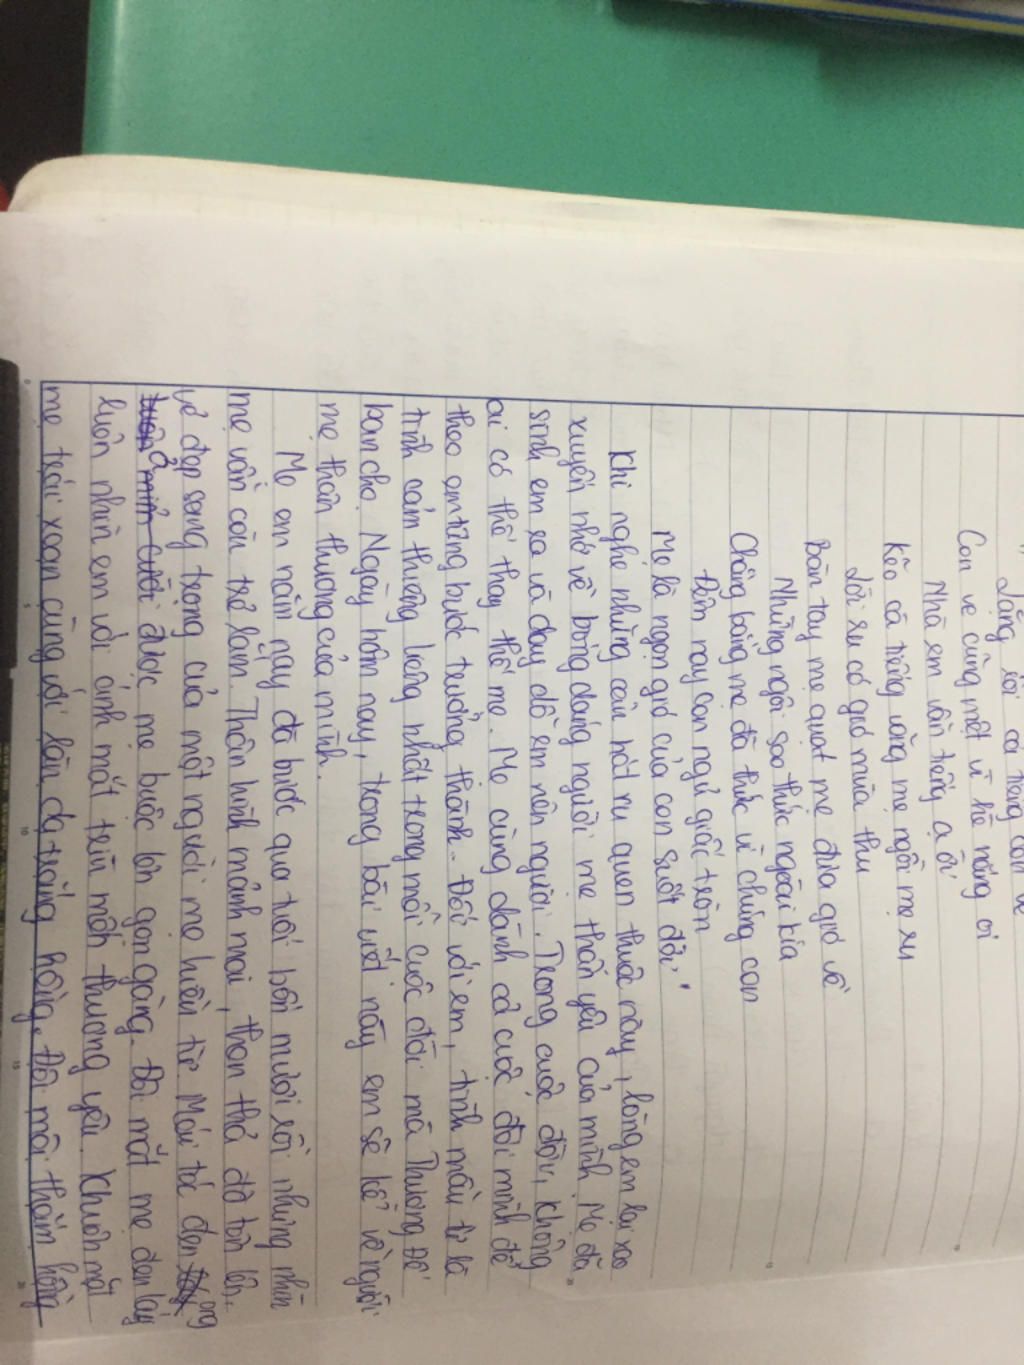 Lặng rồi cả tiếng con ve
Con ve cũng mệt vì hè nắng oi
Nhà em vẫn tiếng ạ ời
Kẽo cà tiếng võng mẹ ngồi mẹ ru
Lời ru có gió mùa thu
Bàn tay mẹ quạt mẹ đưa gió về
Những ngôi sao thức ngoài kia
Chẳng bằng mẹ đã thức vì chúng con
Đêm nay con ngủ giấc tròn
Mẹ là ngọn gió của con suốt đời."
Khi nghe những câu hát ru quen thuộc này, lòng em lại xao
xuyến nhớ về bóng dáng người mẹ thân yêu của mình. Mẹ đã
sinh em ra và dạy dỗ em nên người. Trong cuộc đời, không
ai có thể thay thế mẹ. Mẹ cũng dành cả cuộc đời mình để
theo em từng bước trưởng thành. Đối với em, tình mẫu tử là
tình cảm thiêng liêng nhất trong mỗi cuộc đời mà Thượng Đế
ban cho. Ngày hôm nay, trong bài viết này em sẽ kể về người
mẹ thân thương của mình.
Mẹ em năm nay đã bước qua tuổi bốn mươi rồi nhưng nhìn
mẹ vẫn còn trẻ lắm. Thân hình mảnh mai, thon thả đã tôn lên
vẻ đẹp sang trọng của một người mẹ hiền từ. Mái tóc đen óng
ả được mẹ buộc lên gọn gàng. Đôi mắt mẹ đen láy
luôn nhìn em với ánh mắt trìu mến thương yêu. Khuôn mặt
mẹ trái xoan cùng với làn da trắng hồng. Đôi môi thắm hồng